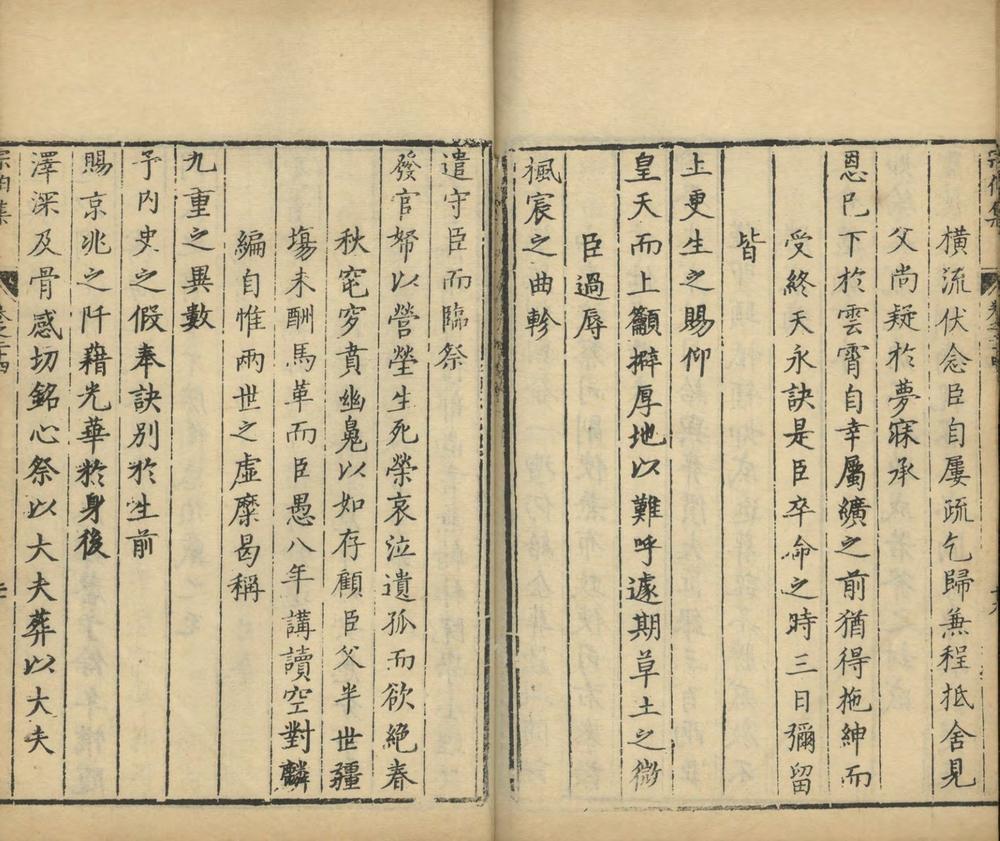 橫流伏念臣自屢疏乞歸兼程抵舍見
父尚疑於夢寐承
恩已下於雲霄自幸屬纊之前猶得拖紳而
受終天永訣是臣卒命之時三日彌留
皆
上更生之賜仰
皇天而上籲擗厚地以難呼遽期草土之微
臣過辱
楓宸之曲軫
遣守臣而臨祭
發官帑以營塋生死榮哀泣遺孤而欲絕春
秋窀穸賁幽鬼以如存顧臣父半世疆
塲未酬馬革而臣愚八年講讀空對麟
編自惟兩世之虛糜曷稱
九重之異數
予內史之假奉訣別於生前
賜京兆之阡藉光華於身後
澤深及骨感切銘心祭以大夫葬以大夫